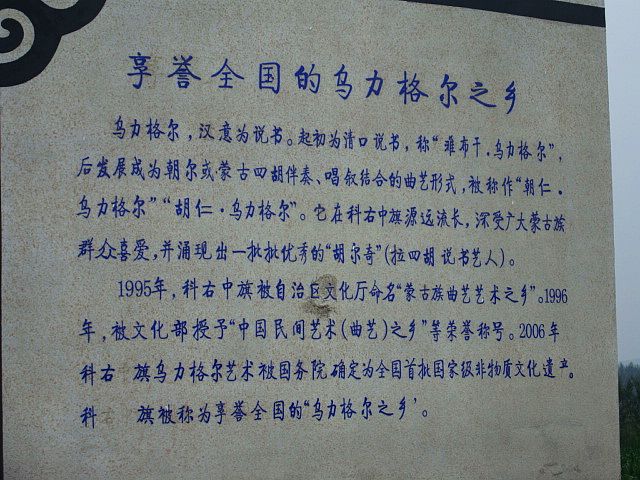 享誉全国的乌力格尔之乡
乌力格尔，汉意为说书。起初为清口说书，称“雅布干·乌力格尔”，
后发展成为朝尔或蒙古四胡伴奏、唱叙结合的曲艺形式，被称作“朝仁·
乌力格尔”“胡仁·乌力格尔”。它在科右中旗源远流长，深受广大蒙古族
群众喜爱，并涌现出一批批优秀的“胡尔奇”(拉四胡说书艺人)。
1995年，科右中旗被自治区文化厅命名“蒙古族曲艺艺术之乡”。1996
年，被文化部授予“中国民间艺术(曲艺)之乡”等荣誉称号。2006年
科右 旗乌力格尔艺术被国务院确定为全国首批国家级非物质文化遗产。
科 旗被称为享誉全国的“乌力格尔之乡’。